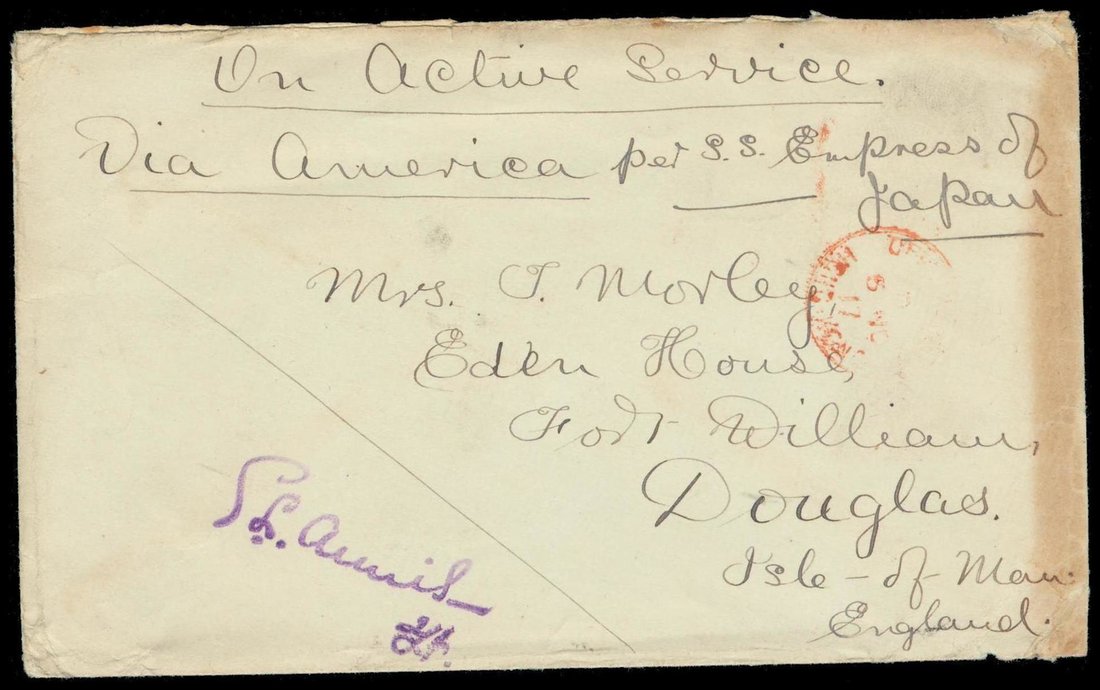 On Active Service.
Via America per S.S. Empress of
Japan
Mrs. T. Morley
Eden House,
Fort William,
Douglas.
Isle-of-Man.
England.
Lt.